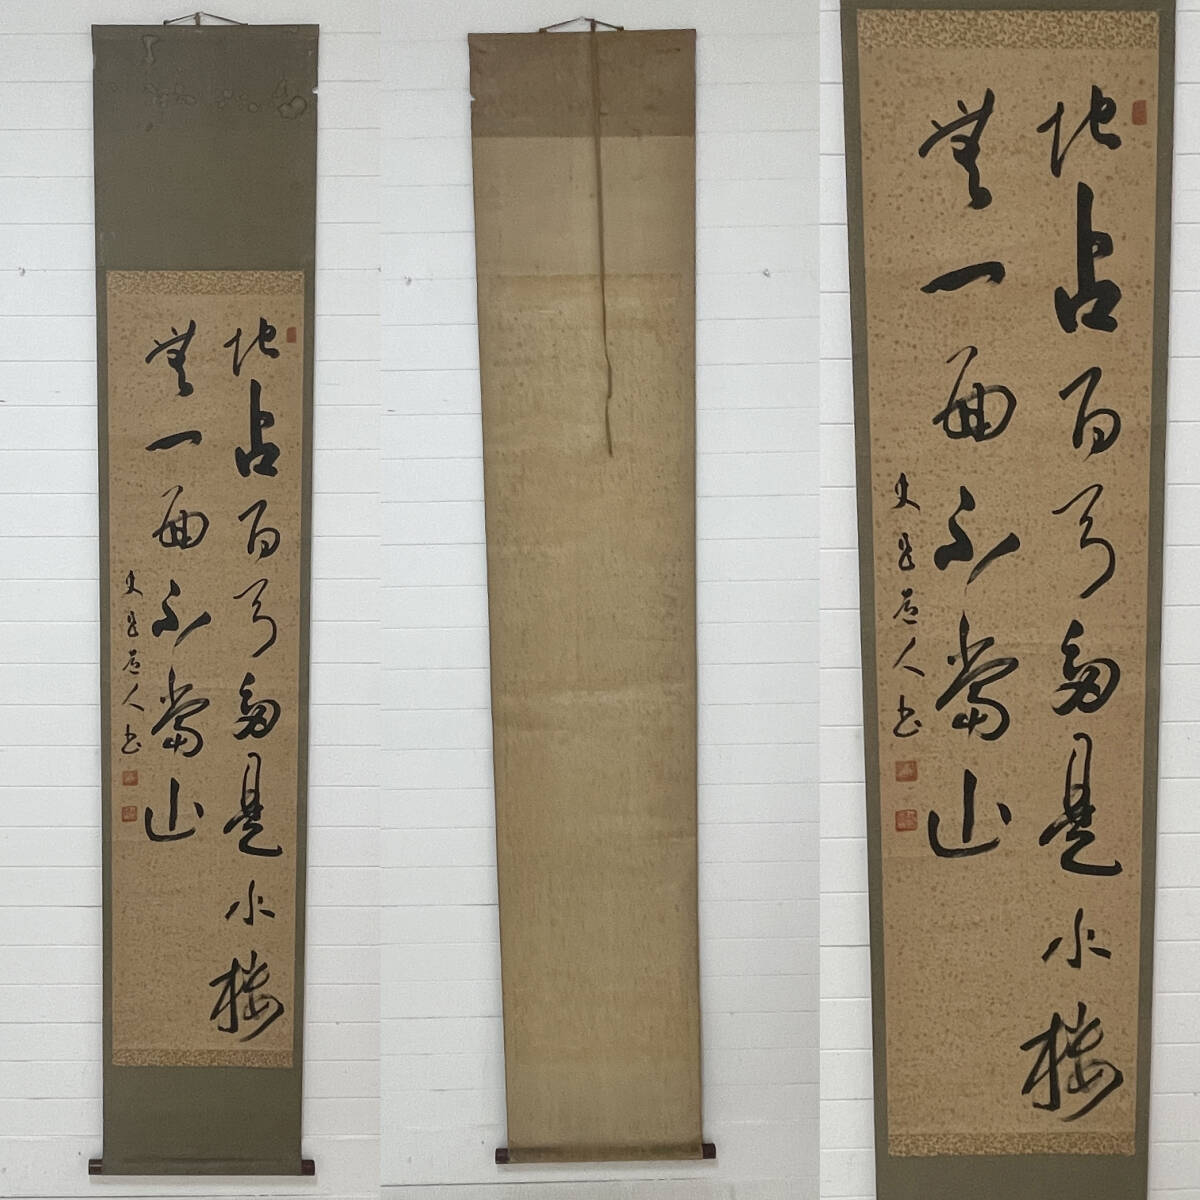 地占百弓多是水樓
無一面不當山
人書
地占百弓多是水樓
無一面不當山
人書